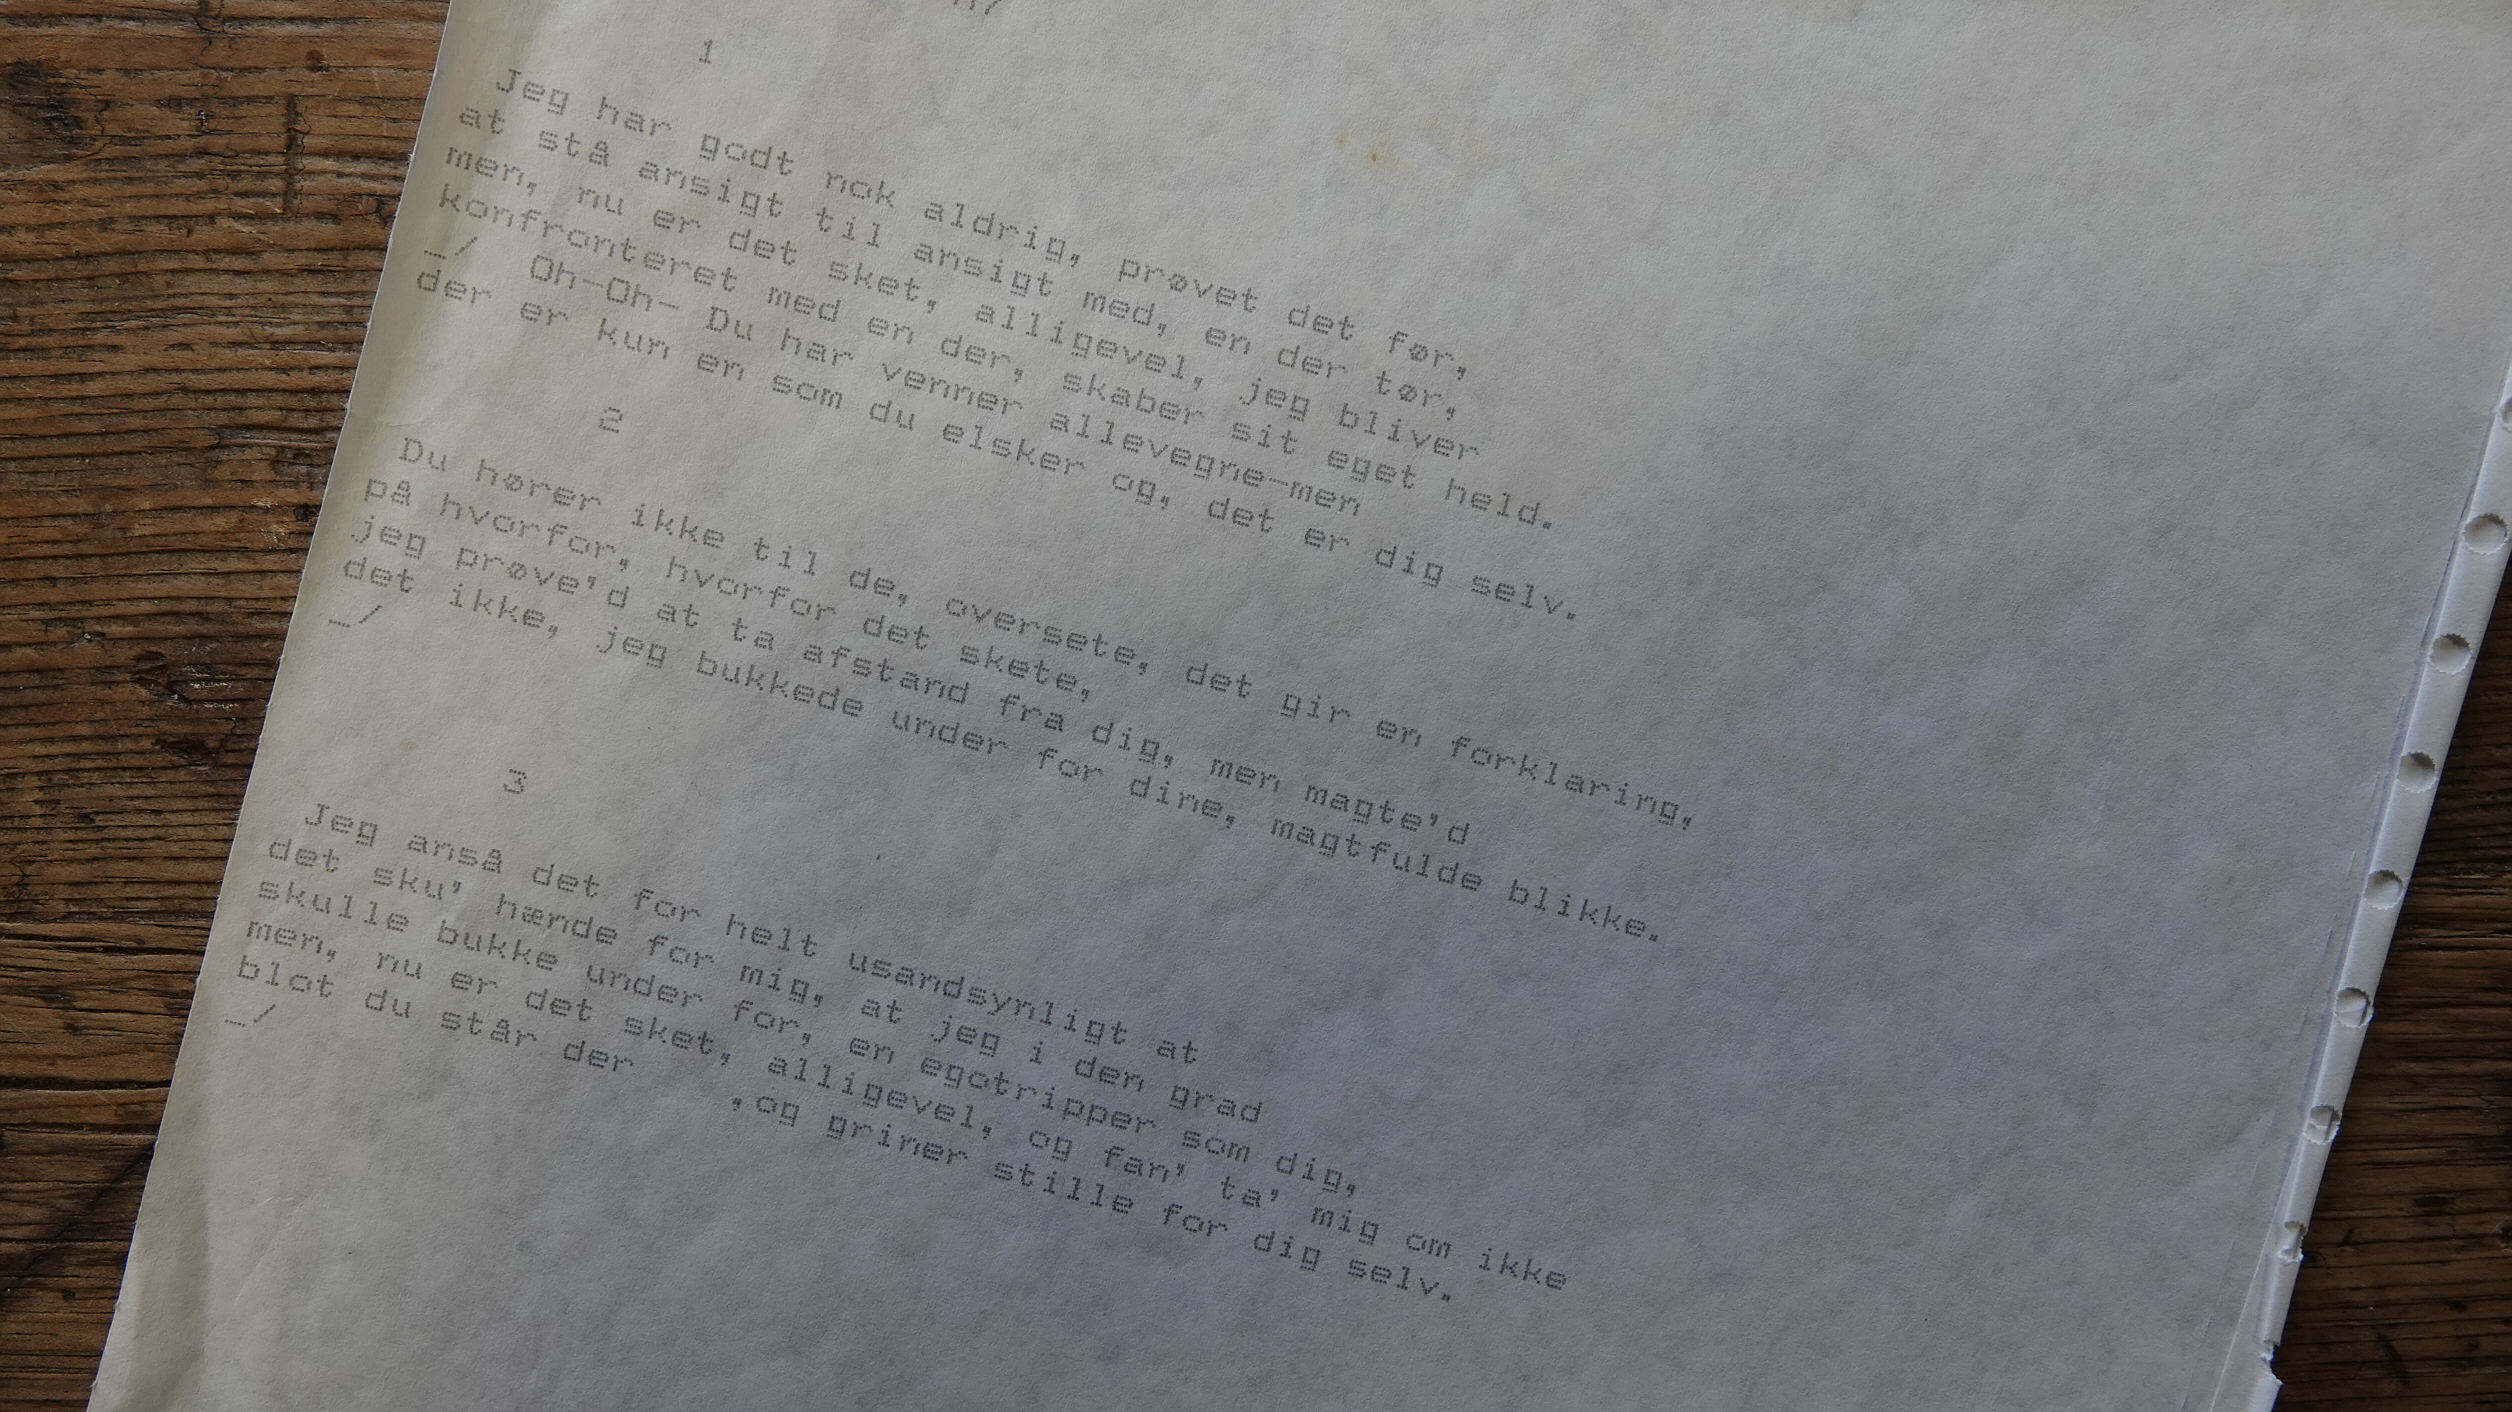 1
Jeg har godt nok aldrig, prøvet det før,
at stå ansigt til ansigt med, en der tør,
men, nu er det sket, alligevel, jeg bliver
konfronteret med en der, skaber sit eget held.
_/ Oh-Oh- Du har venner allevegne-men
der er kun en som du elsker og, det er dig selv.
2
Du hører ikke til de, oversete, det gir en forklaring,
på hvorfor, hvorfor det skete,
jeg prøve'd at ta afstand fra dig, men magte'd
det ikke, jeg bukkede under for dine, magtfulde blikke.
_/
3
Jeg anså det for helt usandsynligt at
det sku' hænde for mig, at jeg i den grad
skulle bukke under for, en egotripper som dig,
men, nu er det sket, alligevel, og fan' ta' mig om ikke
blot du står der ,og griner stille for dig selv.
_/